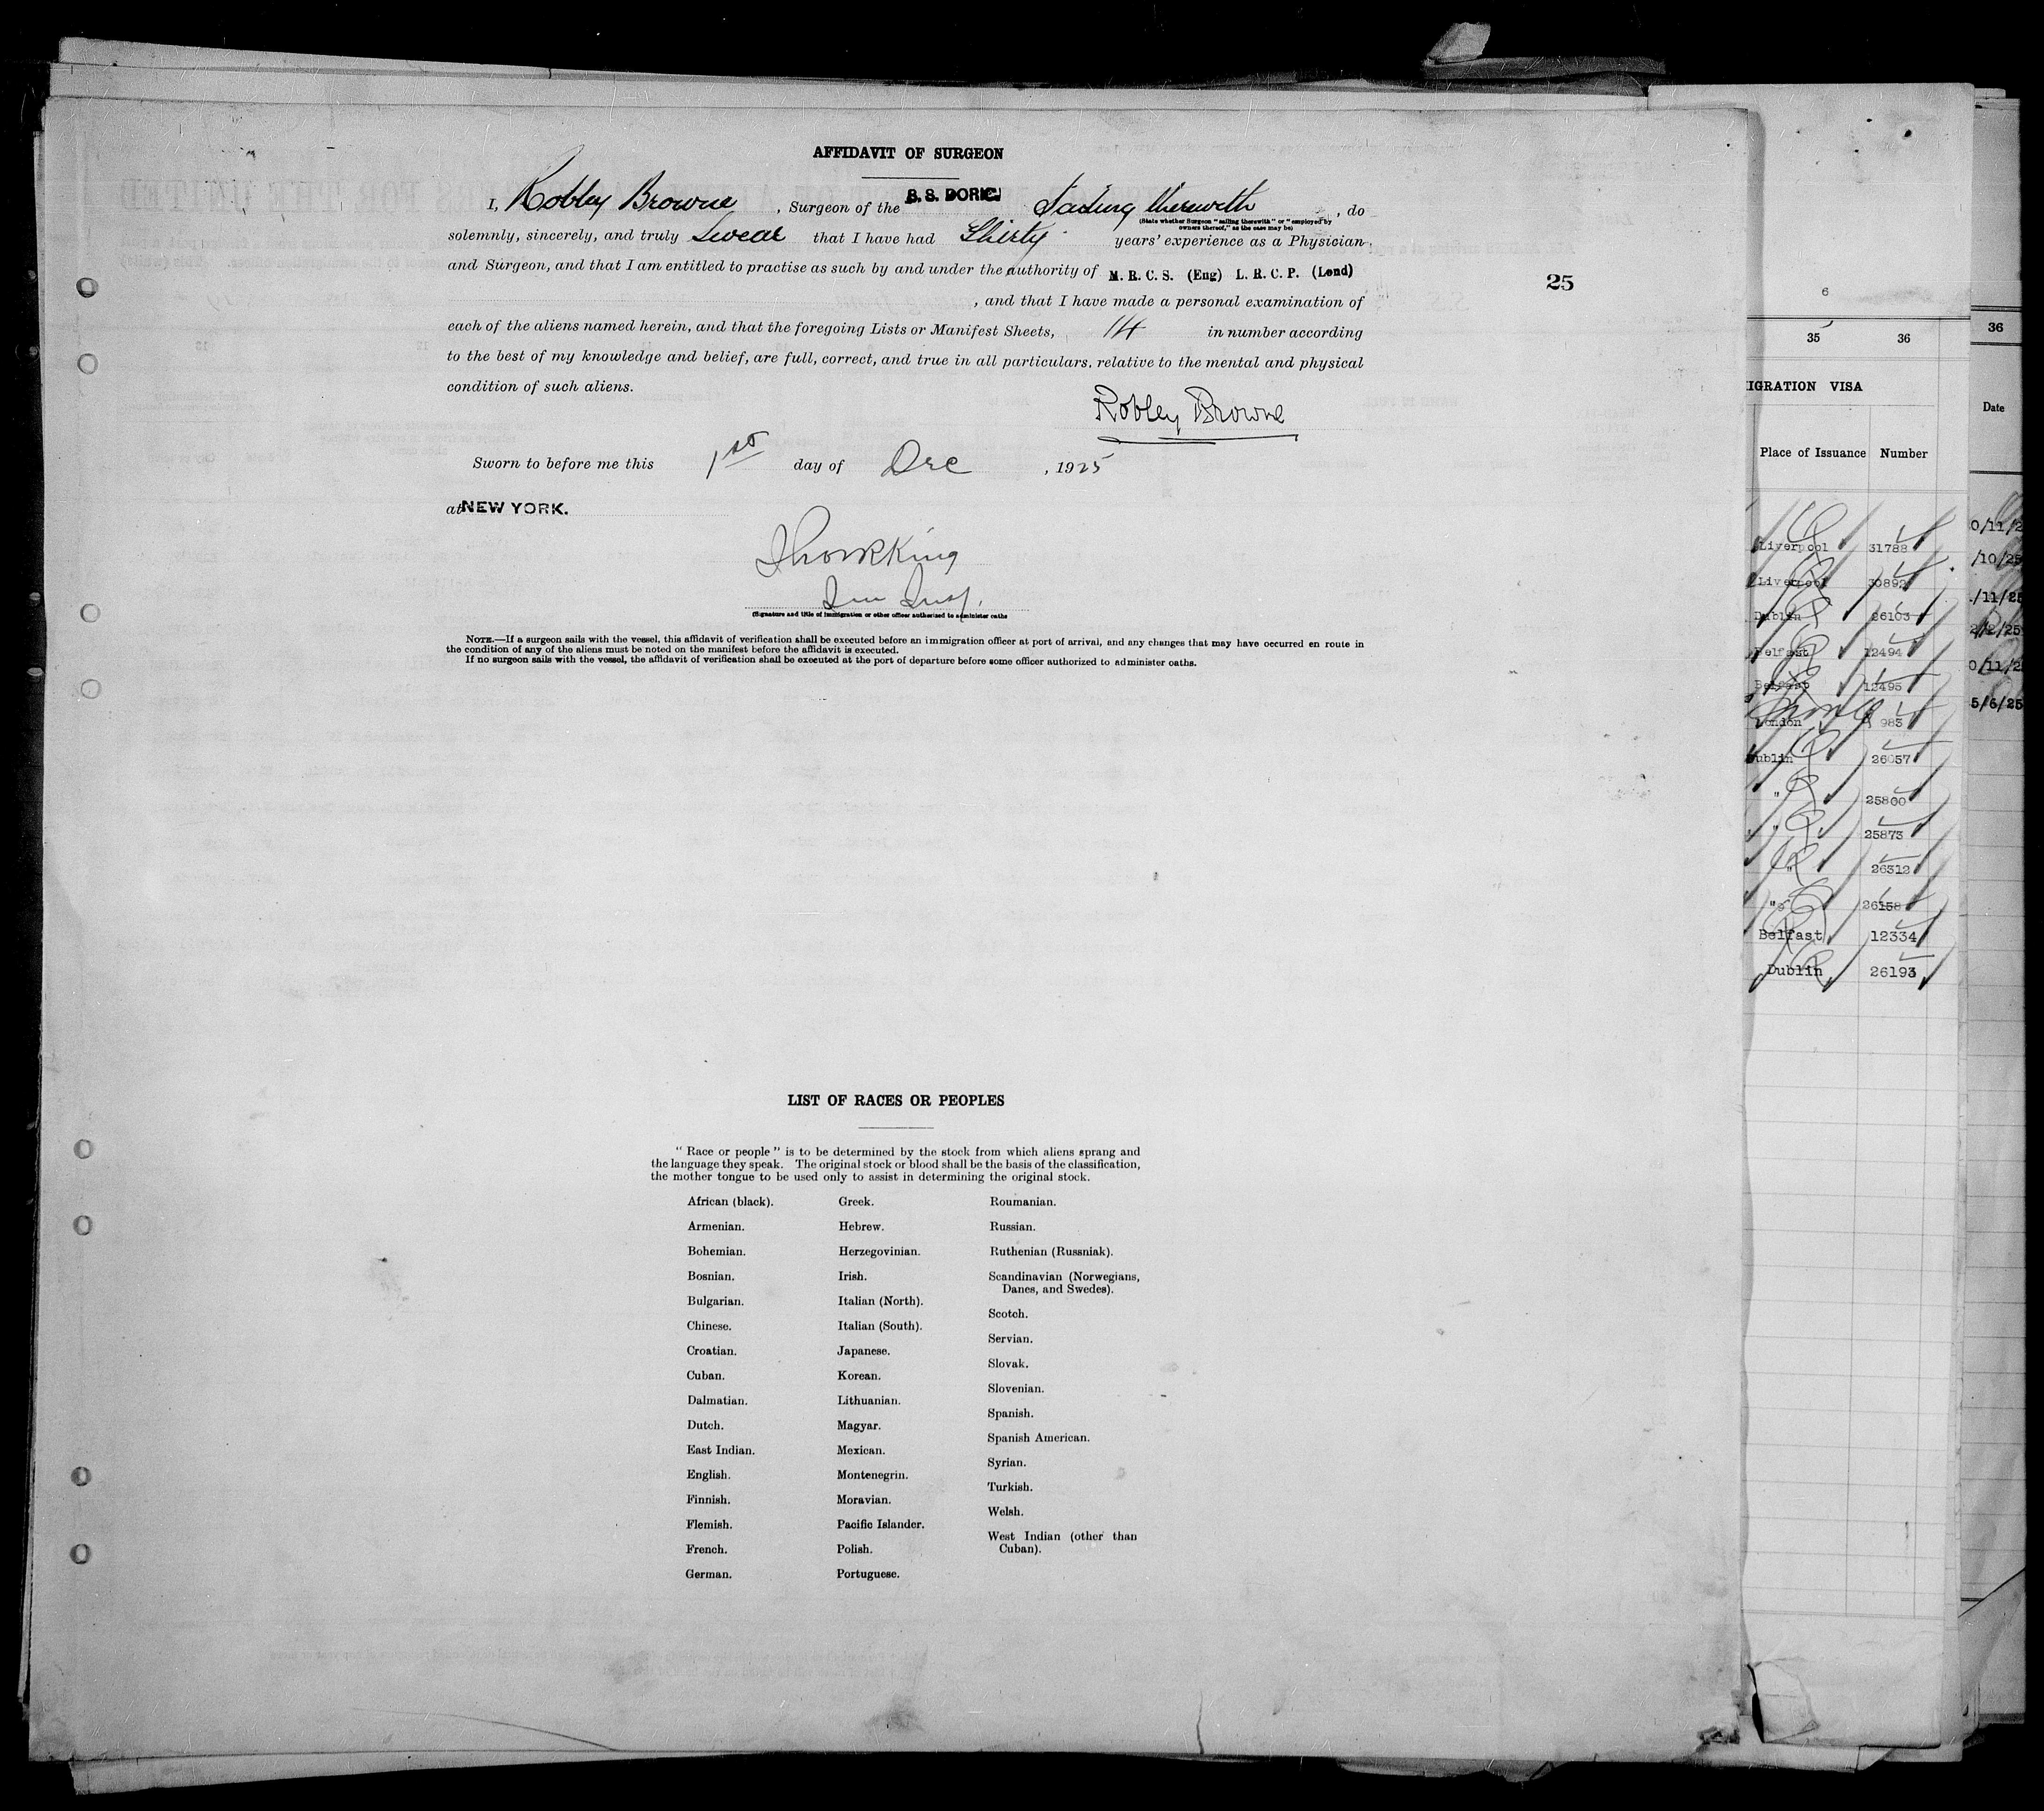 AFFIDAVIT OF SURGEON
I, Robley Browne, Surgeon of the S. S. DORIC. Sailing therewith, do
(State whether Surgeon "sailing therewith" or "employed by
owners thereof," as the case may be)
solemnly, sincerely, and truly Swear that I have had Thirty years' experience as a Physician
and Surgeon, and that I am entitled to practise as such by and under the authority of M. R. C. S. (Eng) L. R. C. P. (Lond)
, and that I have made a personal examination of
each of the aliens named herein, and that the foregoing Lists or Manifest Sheets, 14 in number according
to the best of my knowledge and belief, are full, correct, and true in all particulars, relative to the mental and physical
condition of such aliens.
Robley Browne
Sworn to before me this 1st day of Dec, 1925
at NEW YORK.
Imm Insp.
(Signature and title of immigration or other officer authorized to administer oaths
NOTE.—If a surgeon sails with the vessel, this affidavit of verification shall be executed before an immigration officer at port of arrival, and any changes that may have occurred en route in
the condition of any of the aliens must be noted on the manifest before the affidavit is executed.
If no surgeon sails with the vessel, the affidavit of verification shall be executed at the port of departure before some officer authorized to administer oaths.
25
LIST OF RACES OR PEOPLES
"Race or people" is to be determined by the stock from which aliens sprang and
the language they speak. The original stock or blood shall be the basis of the classification,
the mother tongue to be used only to assist in determining the original stock.
African (black).
Armenian.
Bohemian.
Bosnian.
Bulgarian.
Chinese.
Croatian.
Cuban.
Dalmatian.
Dutch.
East Indian.
English.
Finnish.
Flemish.
French.
German.
Greek.
Hebrew.
Herzegovinian.
Irish.
Italian (North).
Italian (South).
Japanese.
Korean.
Lithuanian.
Magyar.
Mexican.
Montenegrin.
Moravian.
Pacific Islander.
Polish.
Portuguese.
Roumanian.
Russian.
Ruthenian (Russniak).
Scandinavian (Norwegians,
Danes, and Swedes).
Scotch.
Servian.
Slovak.
Slovenian.
Spanish.
Spanish American.
Syrian.
Turkish.
Welsh.
West Indian (other than
Cuban).
6
35 36
IGRATION VISA
Place of Issuance Number
Liverpool 31788
Liverpool 30892
Dublin 26103
Belfast 12494
Belfast 12495
London 983
ublin 26057
" 25800
" 25873
" 26312
" 26158
Belfast 12334
Dublin 26193
36
Date
0/11/2
/10/25
/11/25
2/2/25
0/11/2
5/6/25